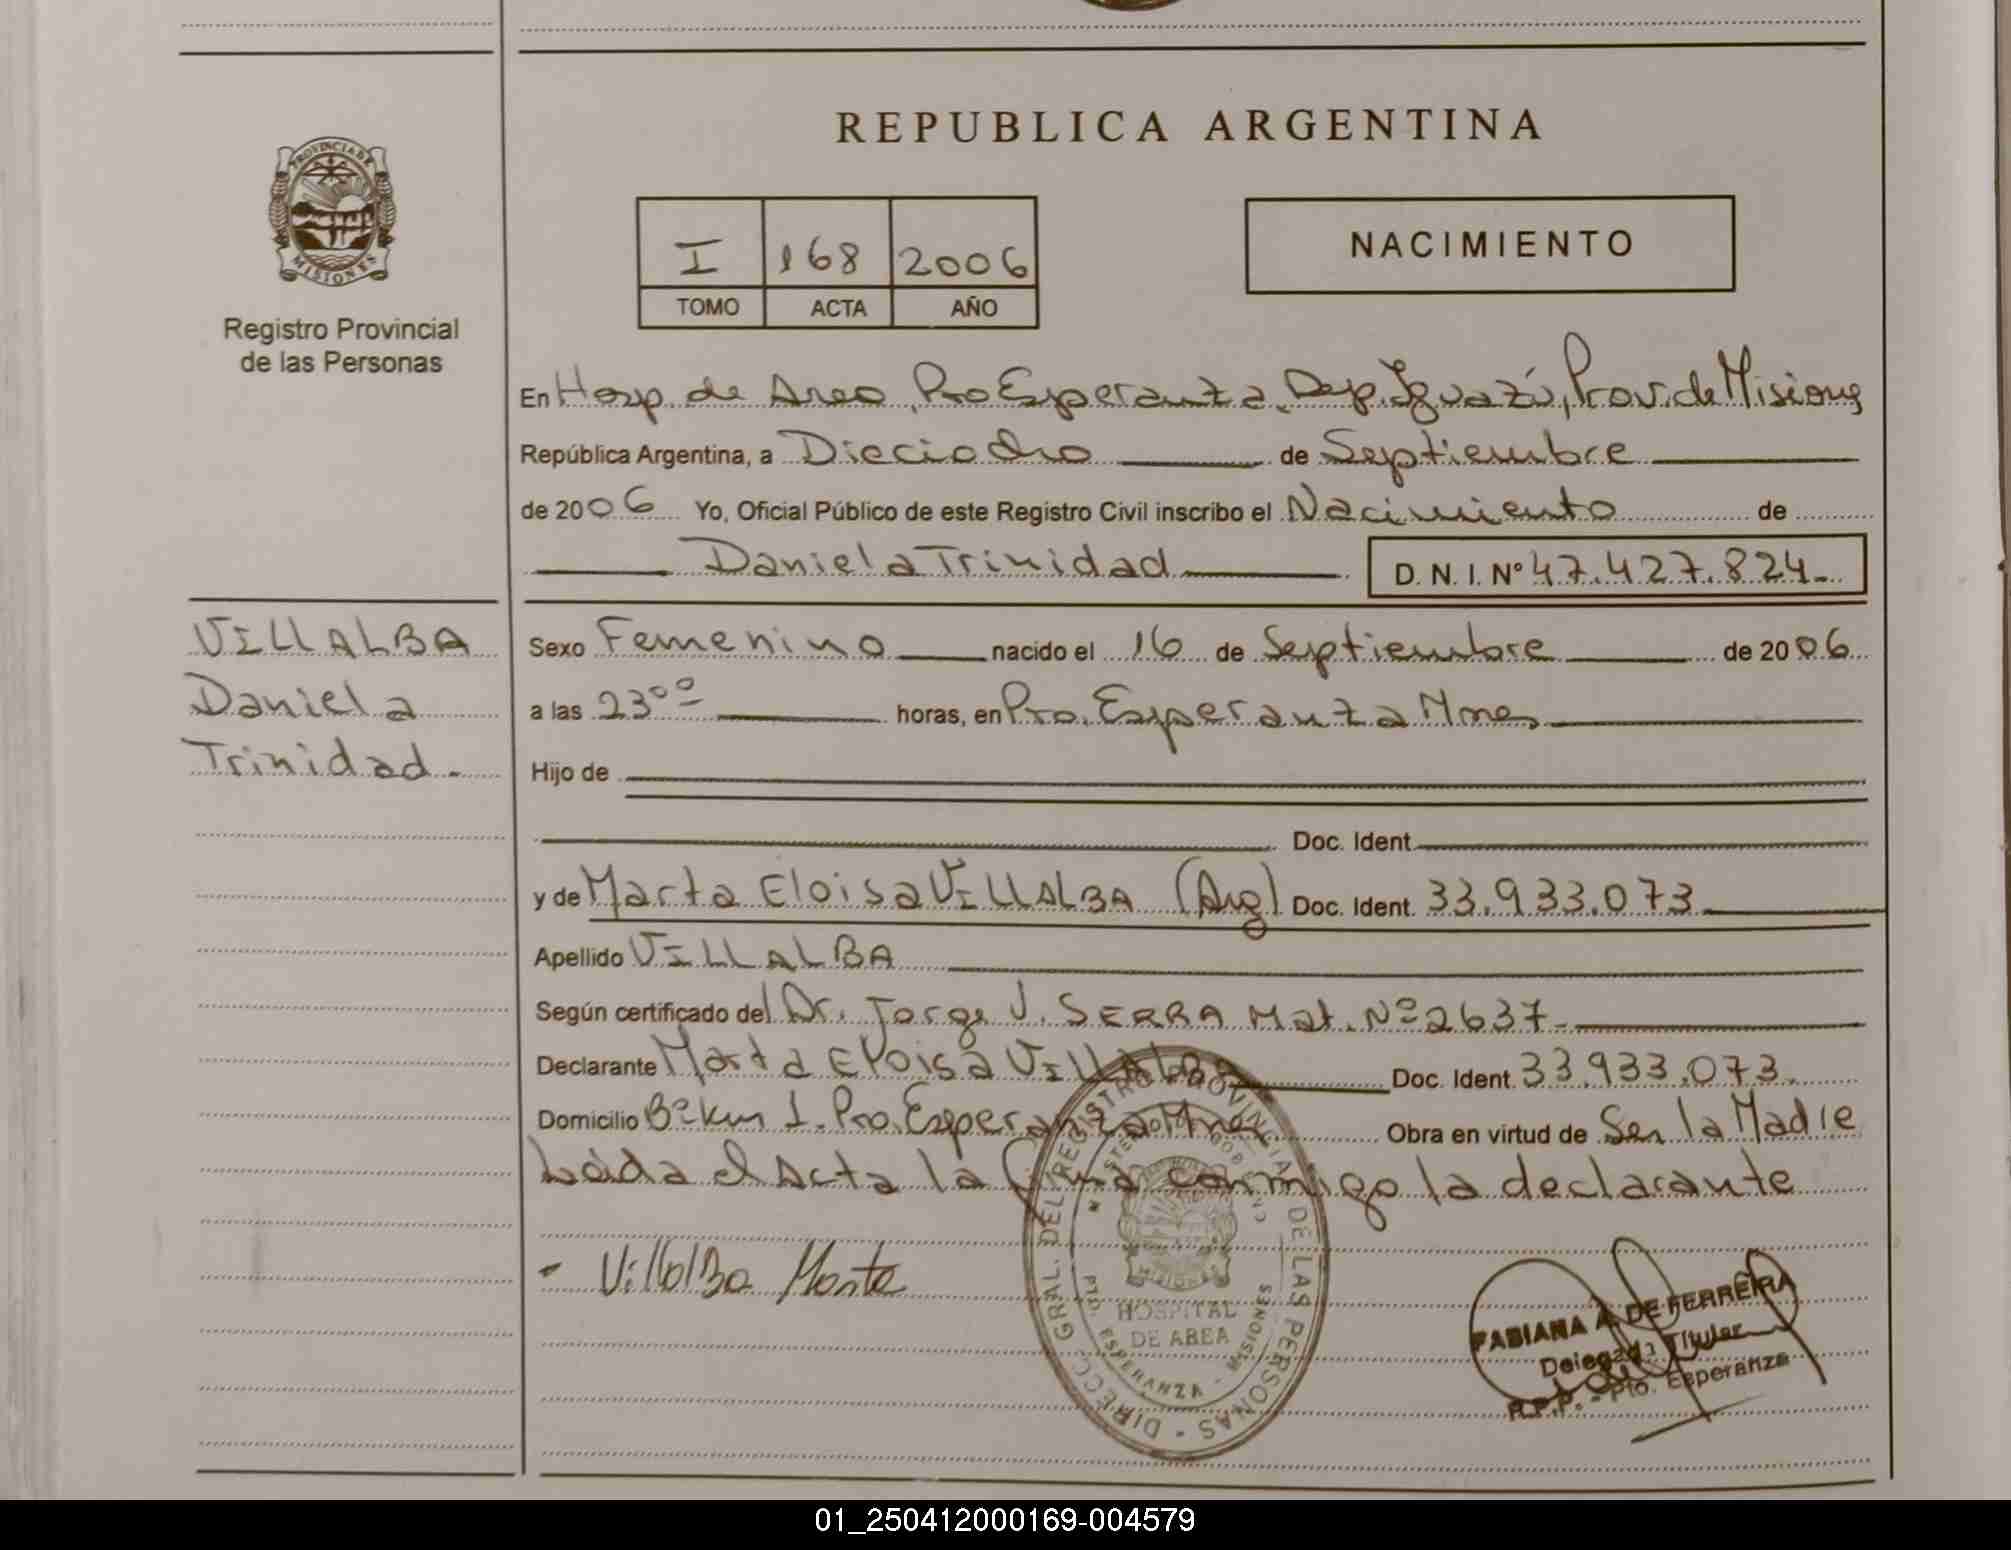 PROVINCIA DE
MISIONES
Registro Provincial
de las Personas
VILLALBA
Daniela
Trinidad.
REPUBLICA ARGENTINA
I 168 2006
TOMO ACTA AÑO
NACIMIENTO
En Hosp. de Area, Pto Esperanza, Dep. Iguazú, Prov. de Misiones
República Argentina, a Dieciocho de Septiembre
de 2006 Yo, Oficial Público de este Registro Civil inscribo el Nacimiento de
Daniela Trinidad D. N. I. Nº 47.427.824
Sexo Femenino nacido el 16 de Septiembre de 2006
a las 23⁰⁰ horas, en Pto. Esperanza Mnes
Hijo de
Doc. Ident.
y de Marta Eloisa VILLALBA (Arg) Doc. Ident. 33.933.073
Apellido VILLALBA
Según certificado del Dr. Jorge J. SERRA Mat. Nº 2637
Declarante Marta Eloisa VILLALBA Doc. Ident. 33.933.073.
Domicilio Bº Km 1. Pto. Esperanza Mnes Obra en virtud de Ser la Madre
Leida el Acta la firma conmigo la declarante
- VillalBa Marta
DIRECC. GRAL. DEL REGISTRO PROVINCIAL DE LAS PERSONAS
HOSPITAL
DE AREA
PTO. ESPERANZA - MISIONES
FABIANA A. DE FERREIRA
Delegada Titular
R.P.P. - Pto. Esperanza
01_250412000169-004579